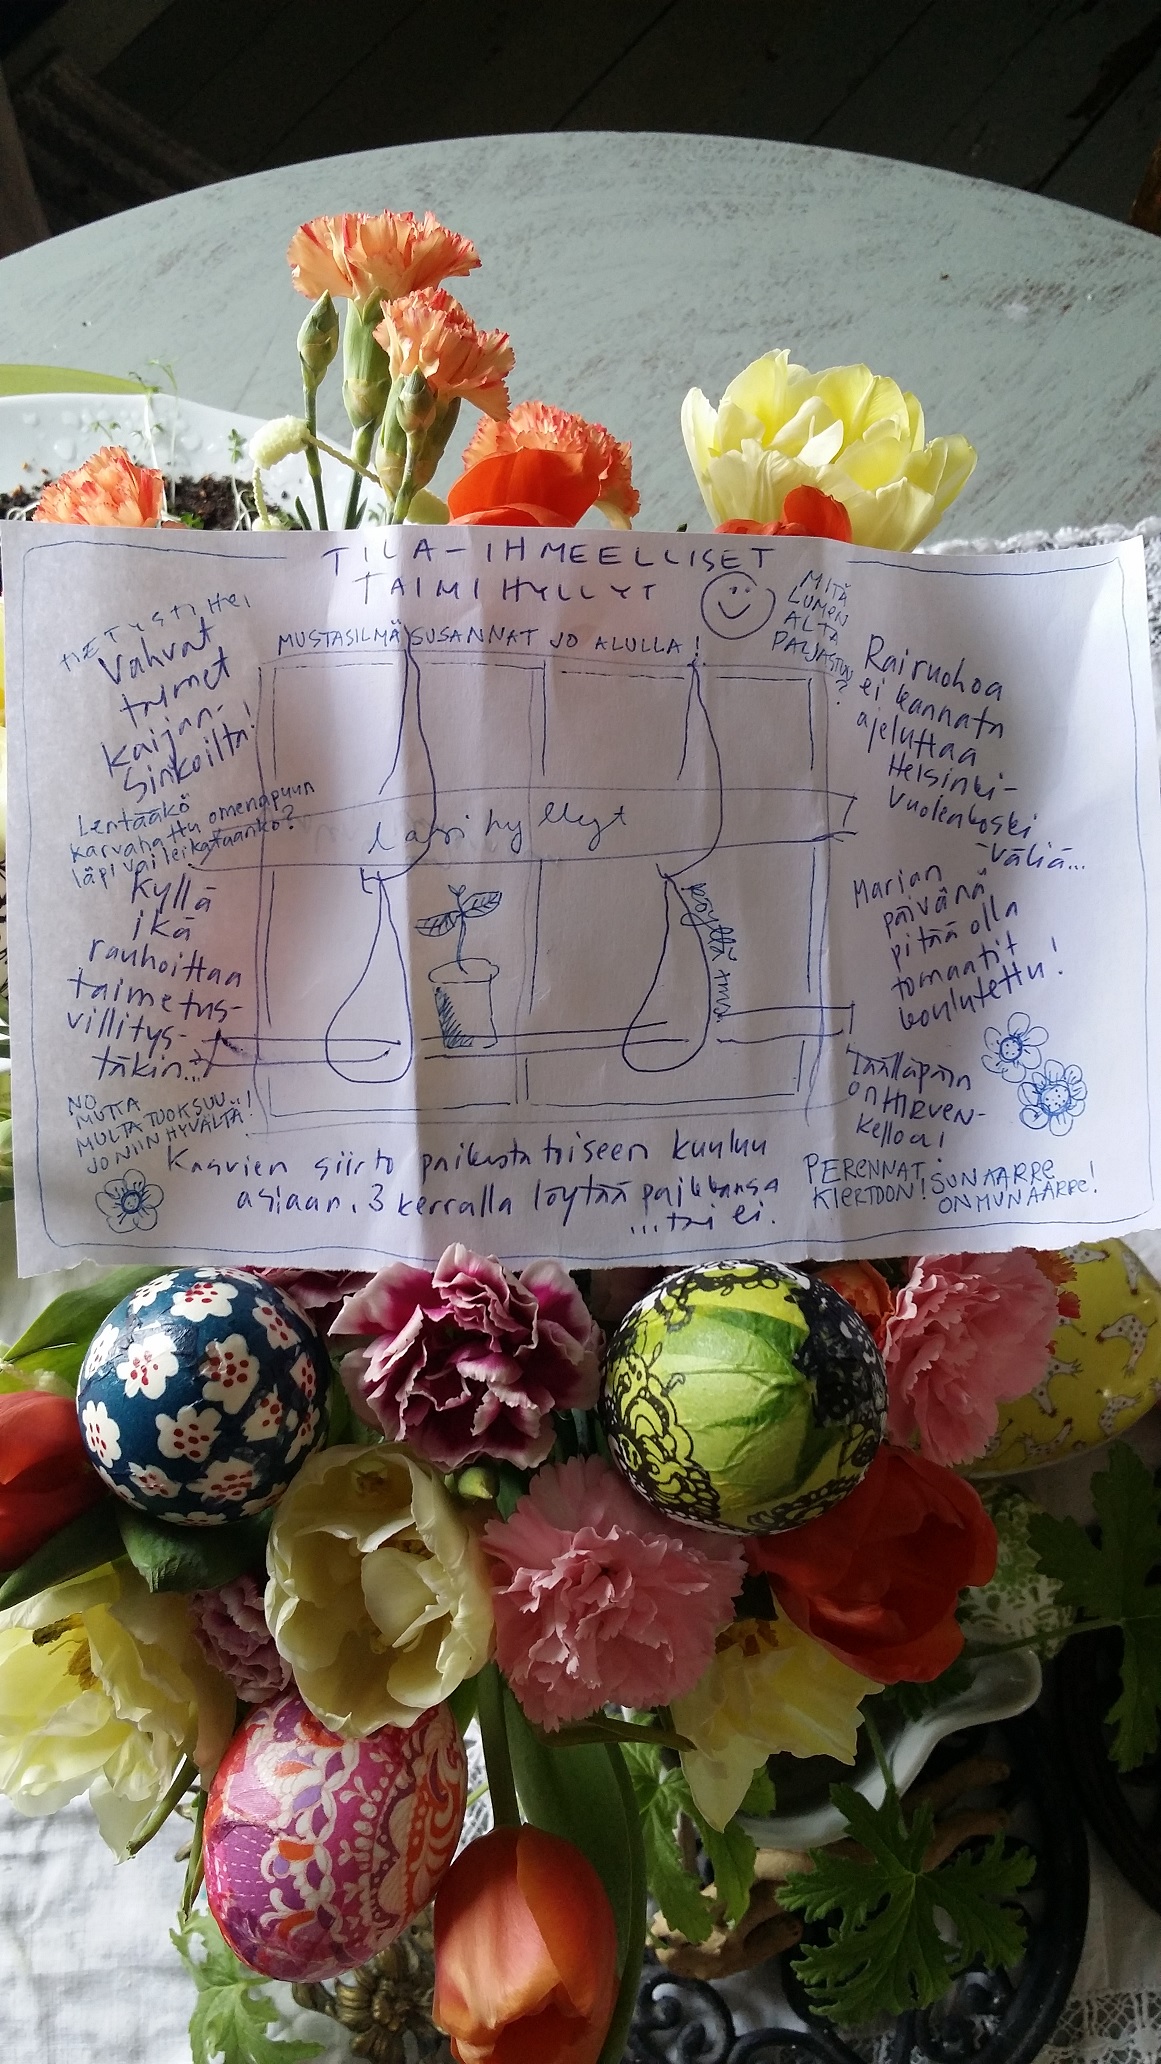 TILA-IHMEELLISET
TAIMIHYLLYT
MUSTASILMÄSUSANNAT JO ALULLA!
Vahvat
taimet
Kaijan-
sinkoilta!
Lentääkö
karvahattu omenapuun
läpi vai leikataanko?
Kyllä
ikä
rauhoittaa
taimetus-
villitys-
täkin...
NO
MUTTA
MULTA TUOKSUU
JO NIIN HYVÄLTÄ!
lasihyllyt
köyttä tms.
MITÄ
LUMEN
ALTA
PALJASTUU
?
Rairuohoa
ei kannata
ajeluttaa
Helsinki-
Vuolenkoski
-väliä...
Marian
päivänä
pitää olla
tomaatit
koulutettu!
Täälläpäin
on HIRVEN-
kelloa!
PERENNAT
KIERTOON! SUN AARRE
ON MUN AARRE!
Kasvien siirto paikasta toiseen kuuluu
asiaan. 3 kerralla löytää paikkansa
...tai ei.